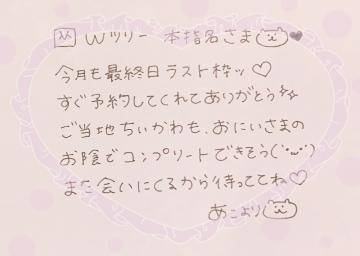 Wツリー 本指名さま♥
今月も最終日ラスト枠ッ♡
すぐ予約してくれてありがとう✨
ご当地ちいかわも、おにいさまの
お陰でコンプリートできそう(˙ᵕ˙)
また会いにくるから待っててね♡
あこより